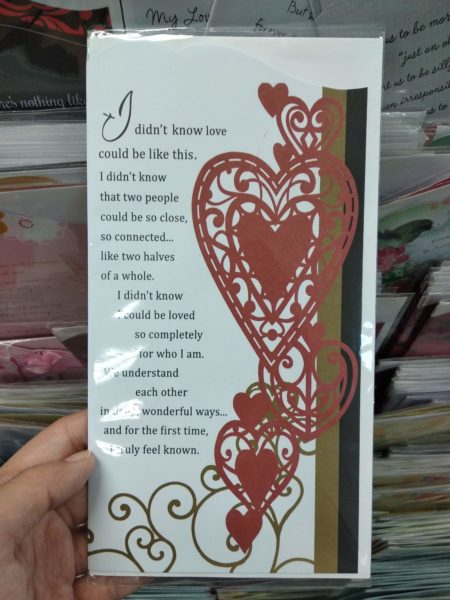 My Lov
But s
forever
us to be more
"just an ol
nt us to be silly
en irresponsib
ere's nothing like
I didn't know love
could be like this.
I didn't know
that two people
could be so close,
so connected...
like two halves
of a whole.
I didn't know
I could be loved
so completely
for who I am.
We understand
each other
in wonderful ways...
and for the first time,
I truly feel known.